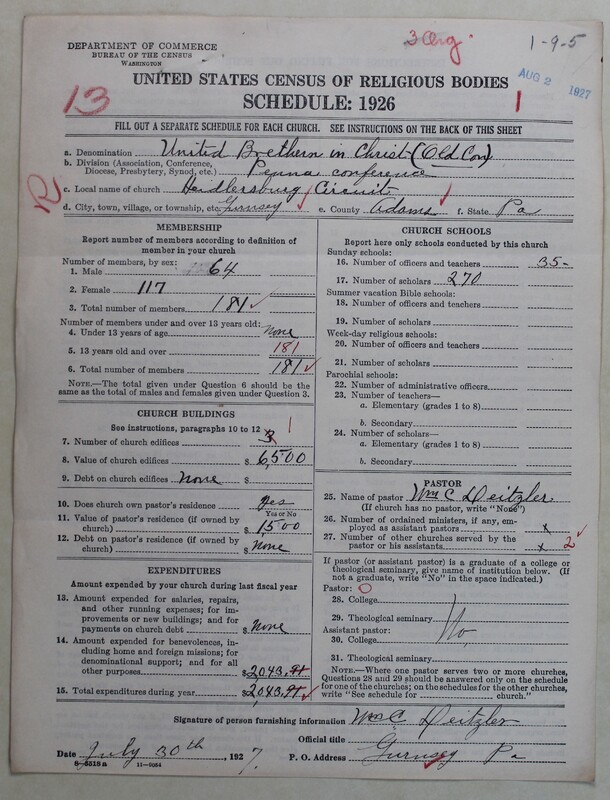 3 Org.
1-9-5
DEPARTMENT OF COMMERCE
BUREAU OF THE CENSUS
WASHINGTON
AUG 2 1927
UNITED STATES CENSUS OF RELIGIOUS BODIES
13
SCHEDULE: 1926
1
FILL OUT A SEPARATE SCHEDULE FOR EACH CHURCH. SEE INSTRUCTIONS ON THE BACK OF THIS SHEET
a. Denomination United Brethern in Christ (Old Con)
b. Division (Association, Conference, Diocese, Presbytery, Synod, etc.) Penna conference
R
c. Local name of church Heidlersburg Circuit
d. City, town, village, or township, etc. Gurnsey e. County Adams f. State Pa
MEMBERSHIP
Report number of members according to definition of member in your church
Number of members, by sex:
1. Male 64
2. Female 117
3. Total number of members 181
Number of members under and over 13 years old:
4. Under 13 years of age none
5. 13 years old and over 181
6. Total number of members 181
NOTE.—The total given under Question 6 should be the same as the total of males and females given under Question 3.
CHURCH BUILDINGS
See instructions, paragraphs 10 to 12
7. Number of church edifices 3 1
8. Value of church edifices $ 6,500
9. Debt on church edifices None $
10. Does church own pastor's residence yes
Yes or No
11. Value of pastor's residence (if owned by church) $ 1,500
12. Debt on pastor's residence (if owned by church) $ None
EXPENDITURES
Amount expended by your church during last fiscal year
13. Amount expended for salaries, repairs, and other running expenses; for improvements or new buildings; and for payments on church debt $ None
14. Amount expended for benevolences, including home and foreign missions; for denominational support; and for all other purposes $ 2043.
15. Total expenditures during year $ 2,043.
CHURCH SCHOOLS
Report here only schools conducted by this church
Sunday schools:
16. Number of officers and teachers 35-
17. Number of scholars 270
Summer vacation Bible schools:
18. Number of officers and teachers
19. Number of scholars
Week-day religious schools:
20. Number of officers and teachers
21. Number of scholars
Parochial schools:
22. Number of administrative officers
23. Number of teachers—
a. Elementary (grades 1 to 8)
b. Secondary
24. Number of scholars—
a. Elementary (grades 1 to 8)
b. Secondary
PASTOR
25. Name of pastor Wm C Deitzler
(If church has no pastor, write "None")
26. Number of ordained ministers, if any, employed as assistant pastors x
27. Number of other churches served by the pastor or his assistants x 2
If pastor (or assistant pastor) is a graduate of a college or theological seminary, give name of institution below. (If not a graduate, write "No" in the space indicated.)
Pastor: O
28. College
29. Theological seminary No,
Assistant pastor:
30. College
31. Theological seminary
NOTE.—Where one pastor serves two or more churches, Questions 28 and 29 should be answered only on the schedule for one of the churches; on the schedules for the other churches, write "See schedule for ------ church."
Signature of person furnishing information Wm C Deitzler
Official title
Date July 30th, 1927. P. O. Address Gurnsey Pa
8-5518 a 11-9064